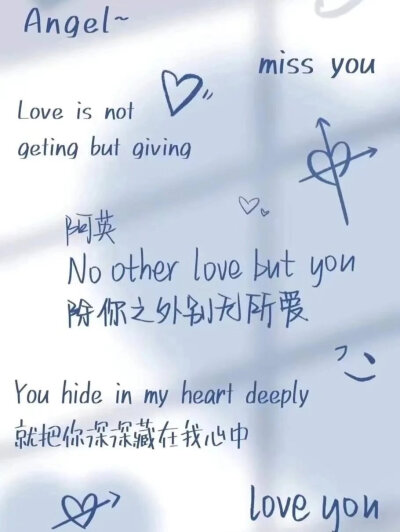 Angel~
miss you
Love is not
geting but giving
阿英
No other love but you
除你之外别无所爱
You hide in my heart deeply
就把你深深藏在我心中
love you